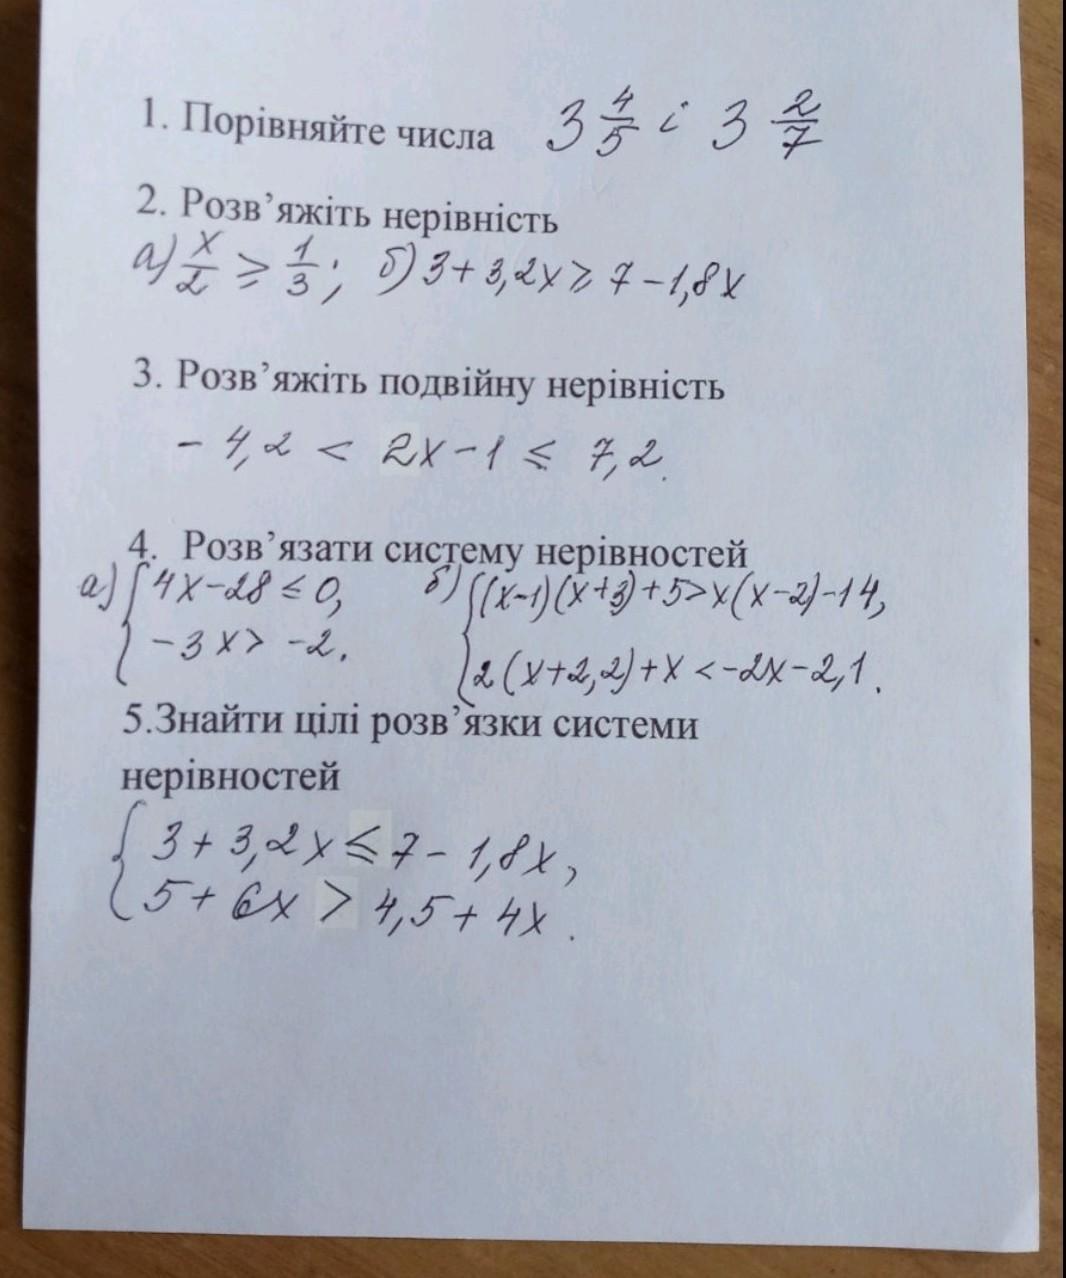 1. Порівняйте числа 3 4/5 і 3 2/7
2. Розв’яжіть нерівність
а) x/2 ⩾ 1/3; б) 3+3,2x ⩾ 7-1,8x
3. Розв’яжіть подвійну нерівність
- 4,2 < 2x-1 ⩽ 7,2.
4. Розв’язати систему нерівностей
а) { 4x-28 ≤ 0, б) { (x-1)(x+3)+5>x(x-2)-14,
-3x > -2. 2(x+2,2)+x <-2x-2,1.
5.Знайти цілі розв’язки системи
нерівностей
{ 3+3,2x ⩽ 7-1,8x,
5+6x > 4,5+4x.